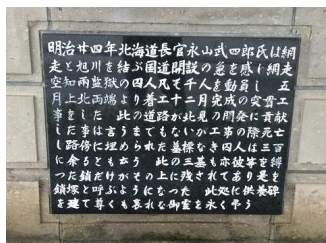 明治廿四年北海道長官永山武四郎氏は網
走と旭川を結ぶ国道開設の急を感じ網走
空知両監獄の囚人凡そ千人を動員し 五
月上北両端より着工十二月完成の突貫工
事をした 此の道路が北見の開発に貢献
した事は言うまでもないが工事の際死亡
し路傍に埋められた墓標なき囚人は三百
に余るとも云う 此の三基も亦彼等を縛
った鎖だけがその上に残されてあり是を
鎖塚と呼ぶようになった 此処に供養碑
を建て尊くも哀れな御霊を永く弔う